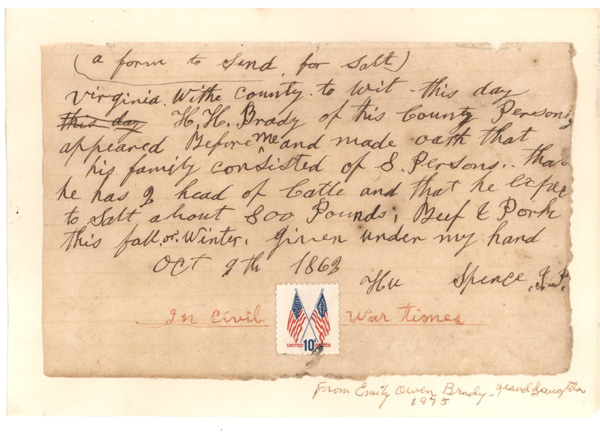 (a form to Send, for Salt)
Virginia. Withe County. to Wit - this day
this day H. H. Brady of this County Personly
appeared Before me and made oath that
his family consisted of 8. Persons.. that
he has 9 head of Catle and that he expec
to Salt about 800 Pounds, Beef & Pork
this fall or Winter. given under my hand
Oct 9th 1862
Hu Spence J.P.
In Civil War times
10c
From Emily Owen Brady - granddaughter
1975